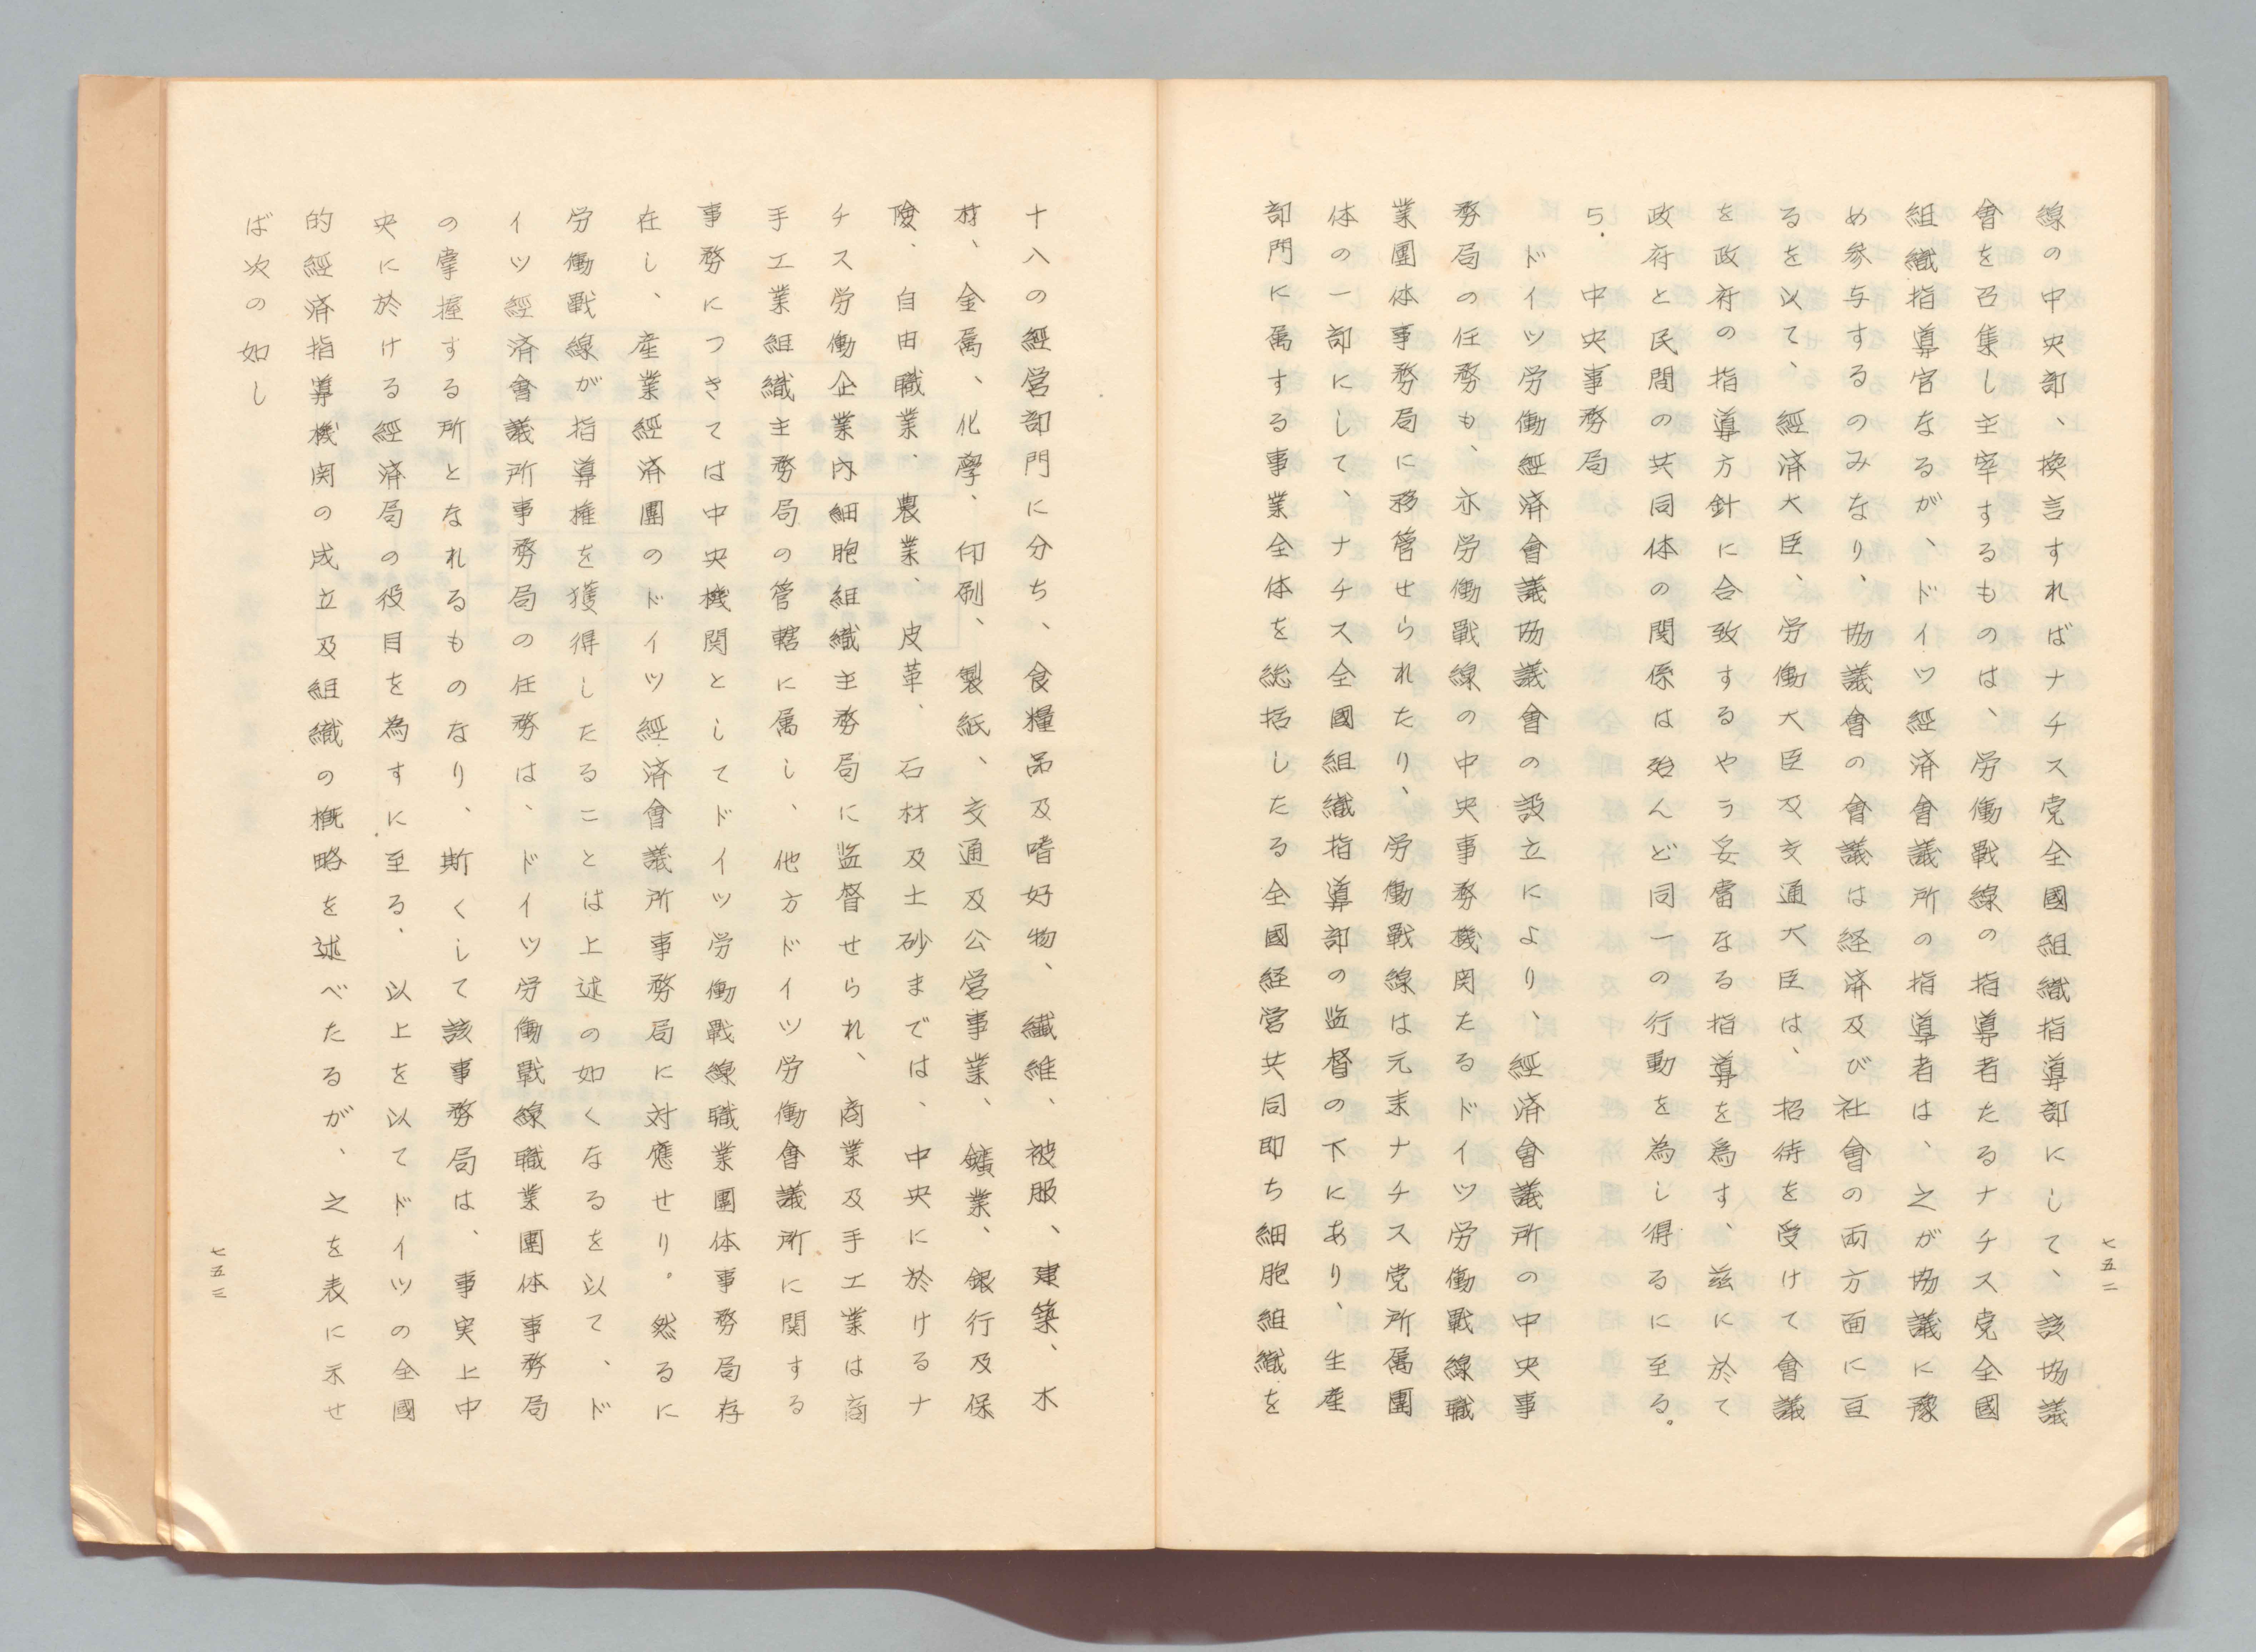 線の中央部、換言すればナチス党全國組織指導部にして、該協議
會を召集し主宰するものは、労働戰線の指導者たるナチス党全國
組織指導官なるが、ドイツ経済會議所の指導者は、之が協議に豫
め参与するのみなり、協議會の會議は経済及び社會の両方面に亘
るを以て、経済大臣、労働大臣及交通大臣は、招待を受けて會議
を政府の指導方針に合致するやう妥當なる指導を爲す、茲に於て
政府と民間の共同体の関係は殆んど同一の行動を為し得るに至る。
5.中央事務局
ドイツ労働經済會議協議會の設立により、經済會議所の中央事
務局の任務も、亦労働戰線の中央事務機関たるドイツ労働戰線職
業團体事務局に移管せられたり、労働戰線は元来ナチス党所属團
体の一部にして、ナチス全國組織指導部の監督の下にあり、生産
部門に属する事業全体を総括したる全國経営共同即ち細胞組織を
七五二
十八の經営部門に分ち、食糧品及嗜好物、繊維、被服、建築、木
材、金属、化學、印刷、製紙、交通及公営事業、鑛業、銀行及保
険、自由職業、農業、皮革、石材及土砂までは、中央に於けるナ
チス労働企業内細胞組織主務局に監督せられ、商業及手工業は商
手工業組織主務局の管轄に属し、他方ドイツ労働會議所に関する
事務につきては中央機関としてドイツ労働戰線職業團体事務局存
在し、産業經済團のドイツ經済會議所事務局に対應せり。然るに
労働戰線が指導権を獲得したることは上述の如くなるを以て、ド
イツ經済會議所事務局の任務は、ドイツ労働戰線職業團体事務局
の掌握する所となれるものなり、斯くして該事務局は、事実上中
央に於ける経済局の役目を為すに至る、以上を以てドイツの全國
的經済指導機関の成立及組織の概略を述べたるが、之を表に示せ
ば次の如し
七五三